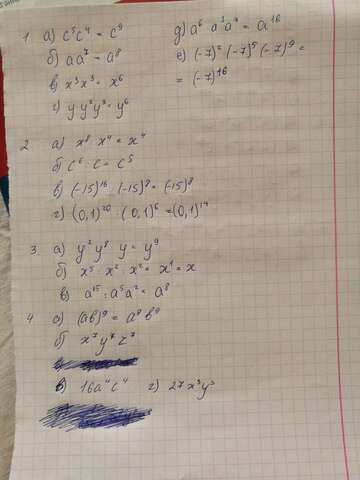 1. а) c⁵c⁴ = c⁹
б) aa⁷ = a⁸
в) x³x³ = x⁶
г) y y²y³ = y⁶
д) a⁶ a³a⁴ = a¹⁶
е) (-7)² (-7)⁵ (-7)⁹ =
= (-7)¹⁶
2 а) x⁸ x⁴ = x⁴
б) c⁶ : c = c⁵
в) (-15)¹⁶ : (-15)⁸ = (-15)⁸
г) (0,1)²⁰ : (0,1)⁶ = (0,1)¹⁴
3. а) y²y⁸ : y = y⁹
б) x⁵ : x² : x² = x¹ = x
в) a¹⁵ : a⁵a² = a⁸
4 а) (ab)⁹ = a⁹b⁹
б) x⁷y⁷z⁷
в) 16a⁴c⁴ г) 27x³y³